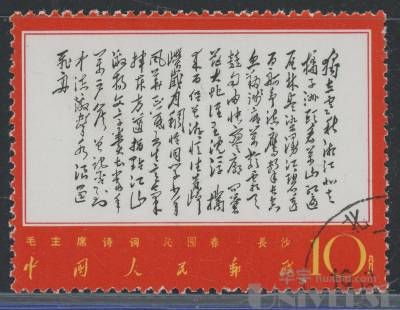 独立寒秋湘江北去
橘子洲头看万山红遍
层林尽染漫江碧透
百舸争流鹰击长空
鱼翔浅底万类霜天
竞自由怅寥廓问
苍茫大地谁主沉浮携
来百侣曾游忆往昔
峥嵘岁月稠恰同学少年
风华正茂书生意气
挥斥方遒指点江山
激扬文字粪土当年
万户侯曾记否到
中流击水浪遏
飞舟
毛主席诗词 沁园春 长沙
中國人民郵政 10分
北
华宇 huabid.com
UNIVERSE